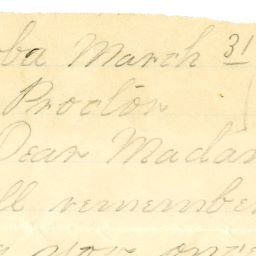 ba March 31
Proctor
Dear Madam
ll remember
you once